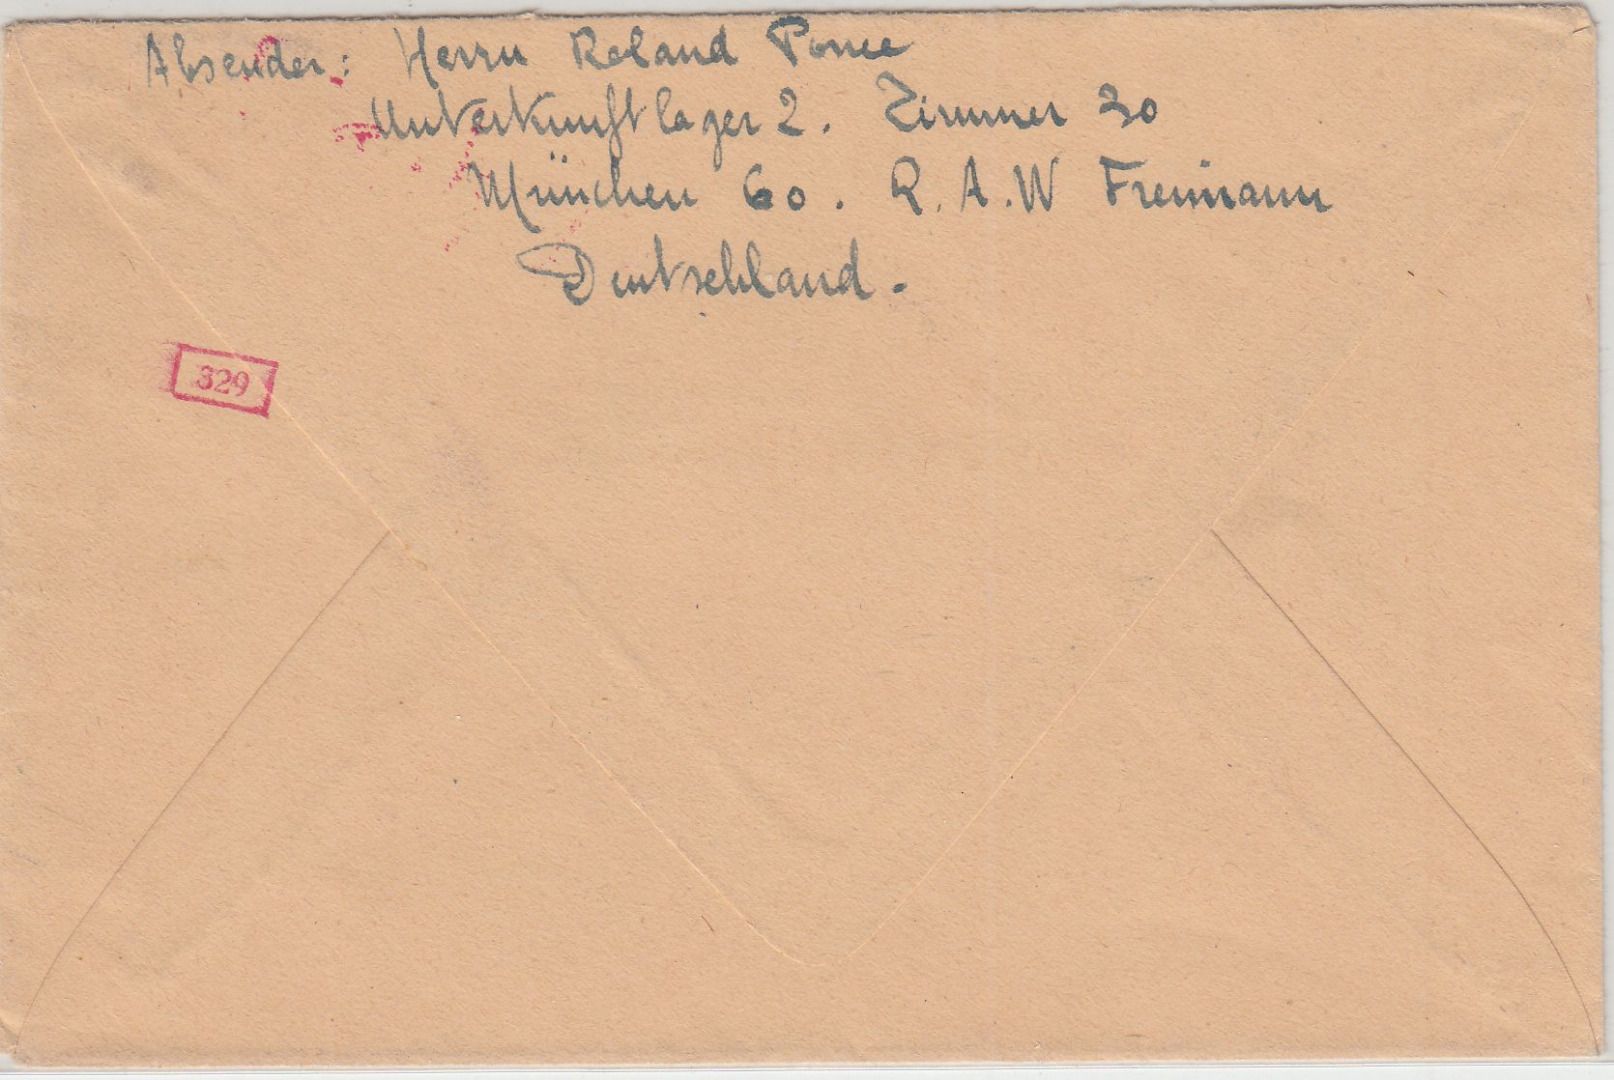 Absender: Herrn Roland Ponce
Unterkunftlager 2. Zimmer 30
München 60. R.A.W Freimann
Deutschland.
329